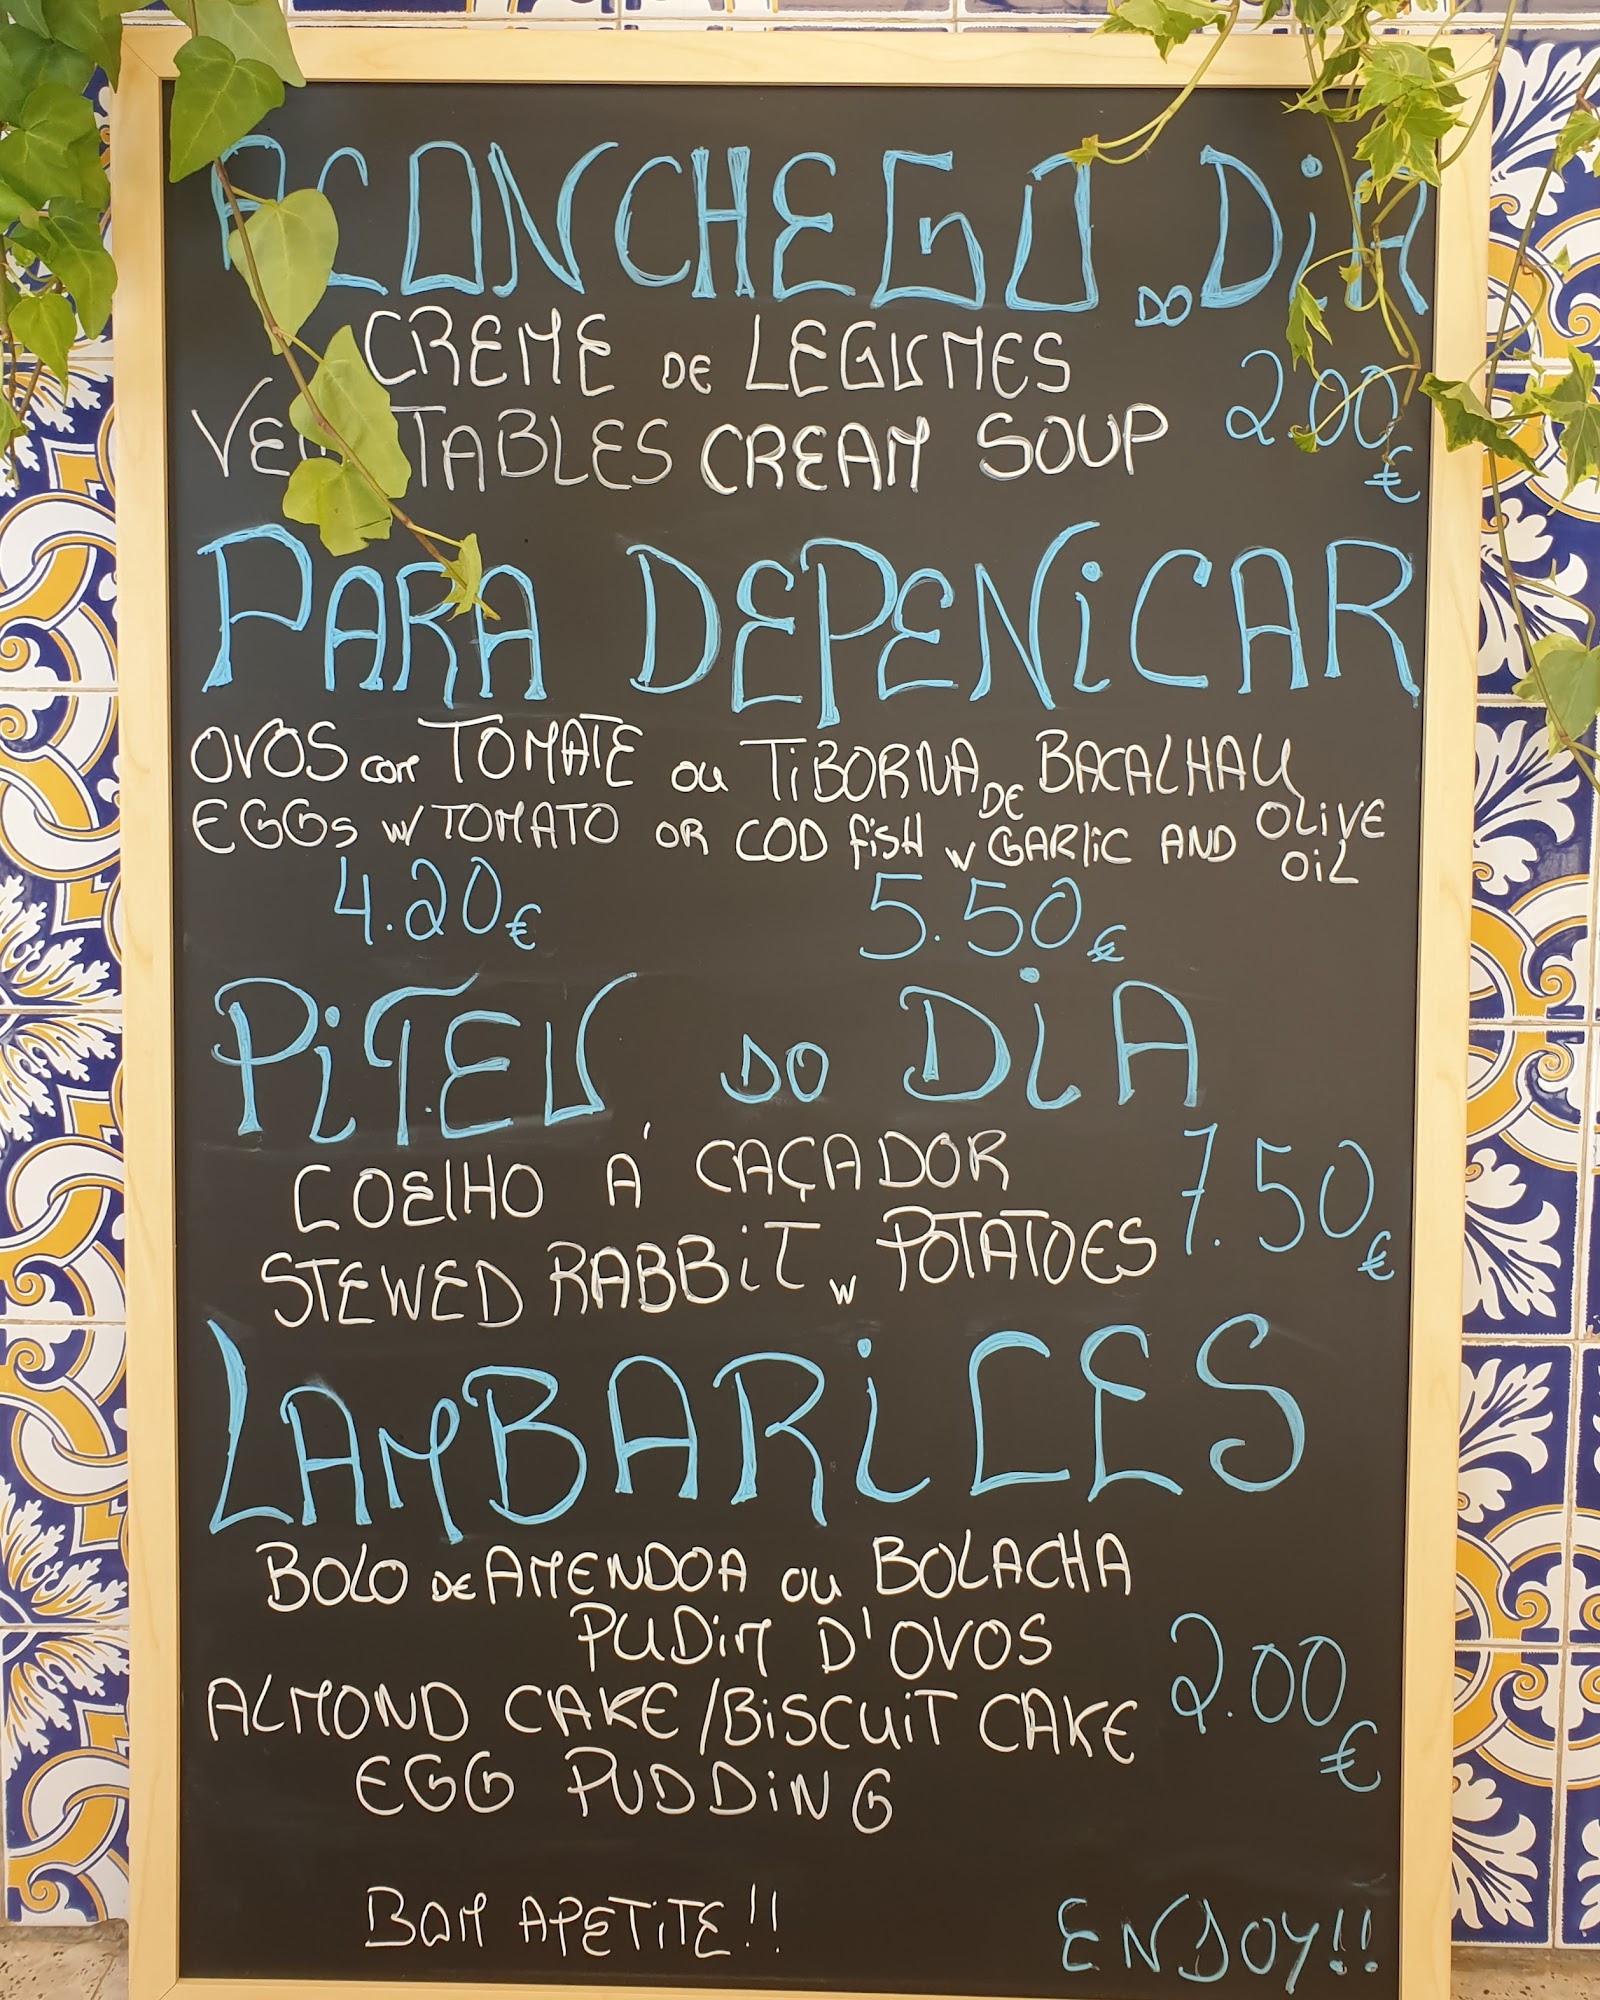 ACONCHEGO DO DiA
CREME DE LEGUMES
VEGETABLES CREAM SOUP 2.00€
PARA DEPENiCAR
OVOS com TOMATE ou TiBORNA DE BACALHAU
EGGs w/ TOMATO OR COD fiSH w GARLiC AND OLIVE OiL
4.20€ 5.50€
PiTEU DO DiA
COELHO Á CAÇADOR 7.50€
STEWED RABBiT w POTATOES
LAMBARiCES
BOLO DE AMENDOA ou BOLACHA
PUDiM D'OVOS
ALMOND CAKE/BiSCUiT CAKE 2.00€
EGG PUDDiNG
BOM APETiTE!! ENJOY!!